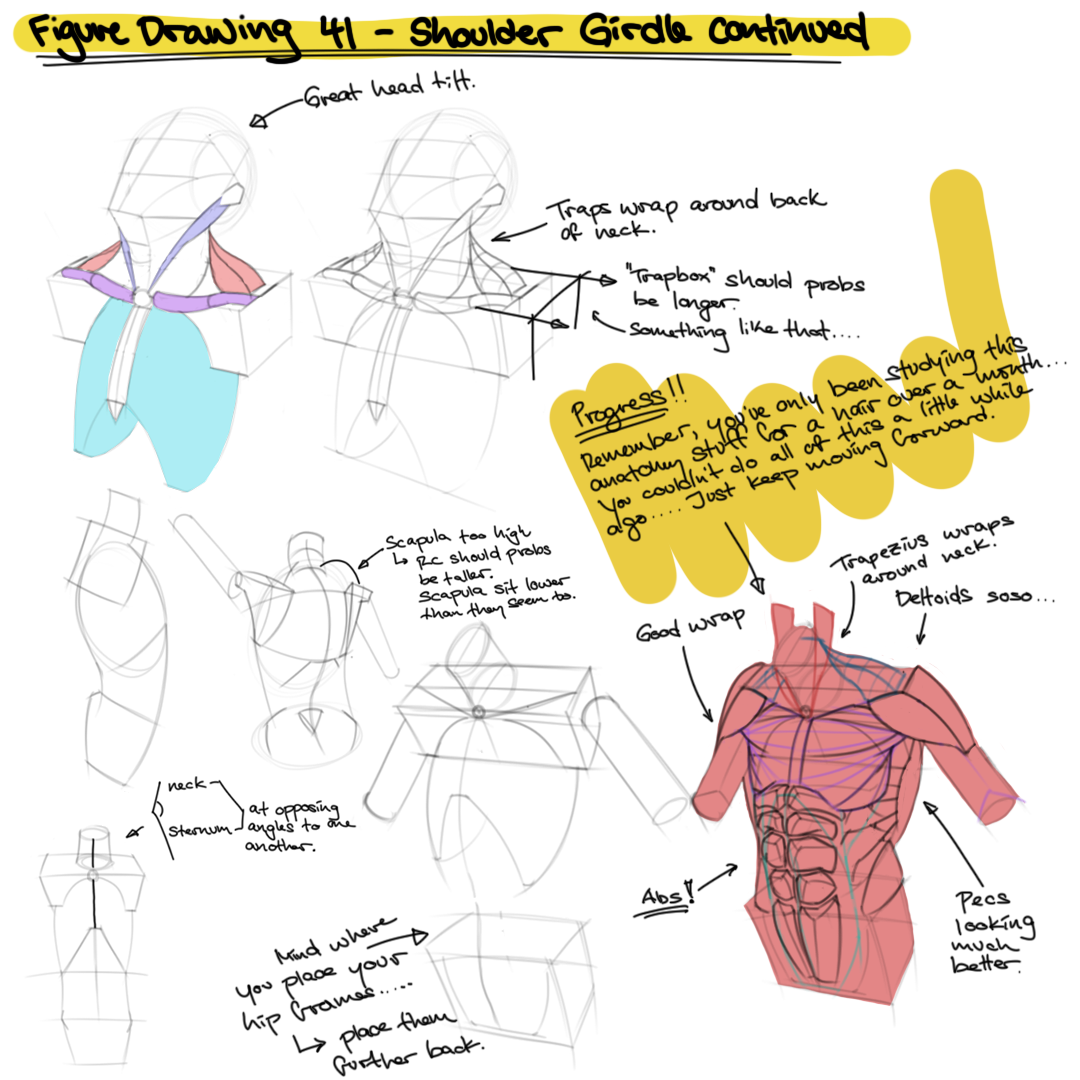 Figure Drawing 41 - Shoulder Girdle Continued
Great head tilt.
Traps wrap around back
of neck.
"Trapbox" should probs
be longer.
Something like that....
Progress!!
Remember, you've only been studying this
anatomy stuff for a hair over a month...
You couldn't do all of this a little while
ago..... Just keep moving forward.
Scapula too high
↳ RC should probs
be taller.
Scapula sit lower
than they seem to.
Trapezius wraps
around neck.
Deltoids soso...
Good wrap
neck
sternum
at opposing
angles to one
another.
Abs!
Pecs
looking
much
better.
Mind where
you place your
hip frames.....
↳ place them
further back.